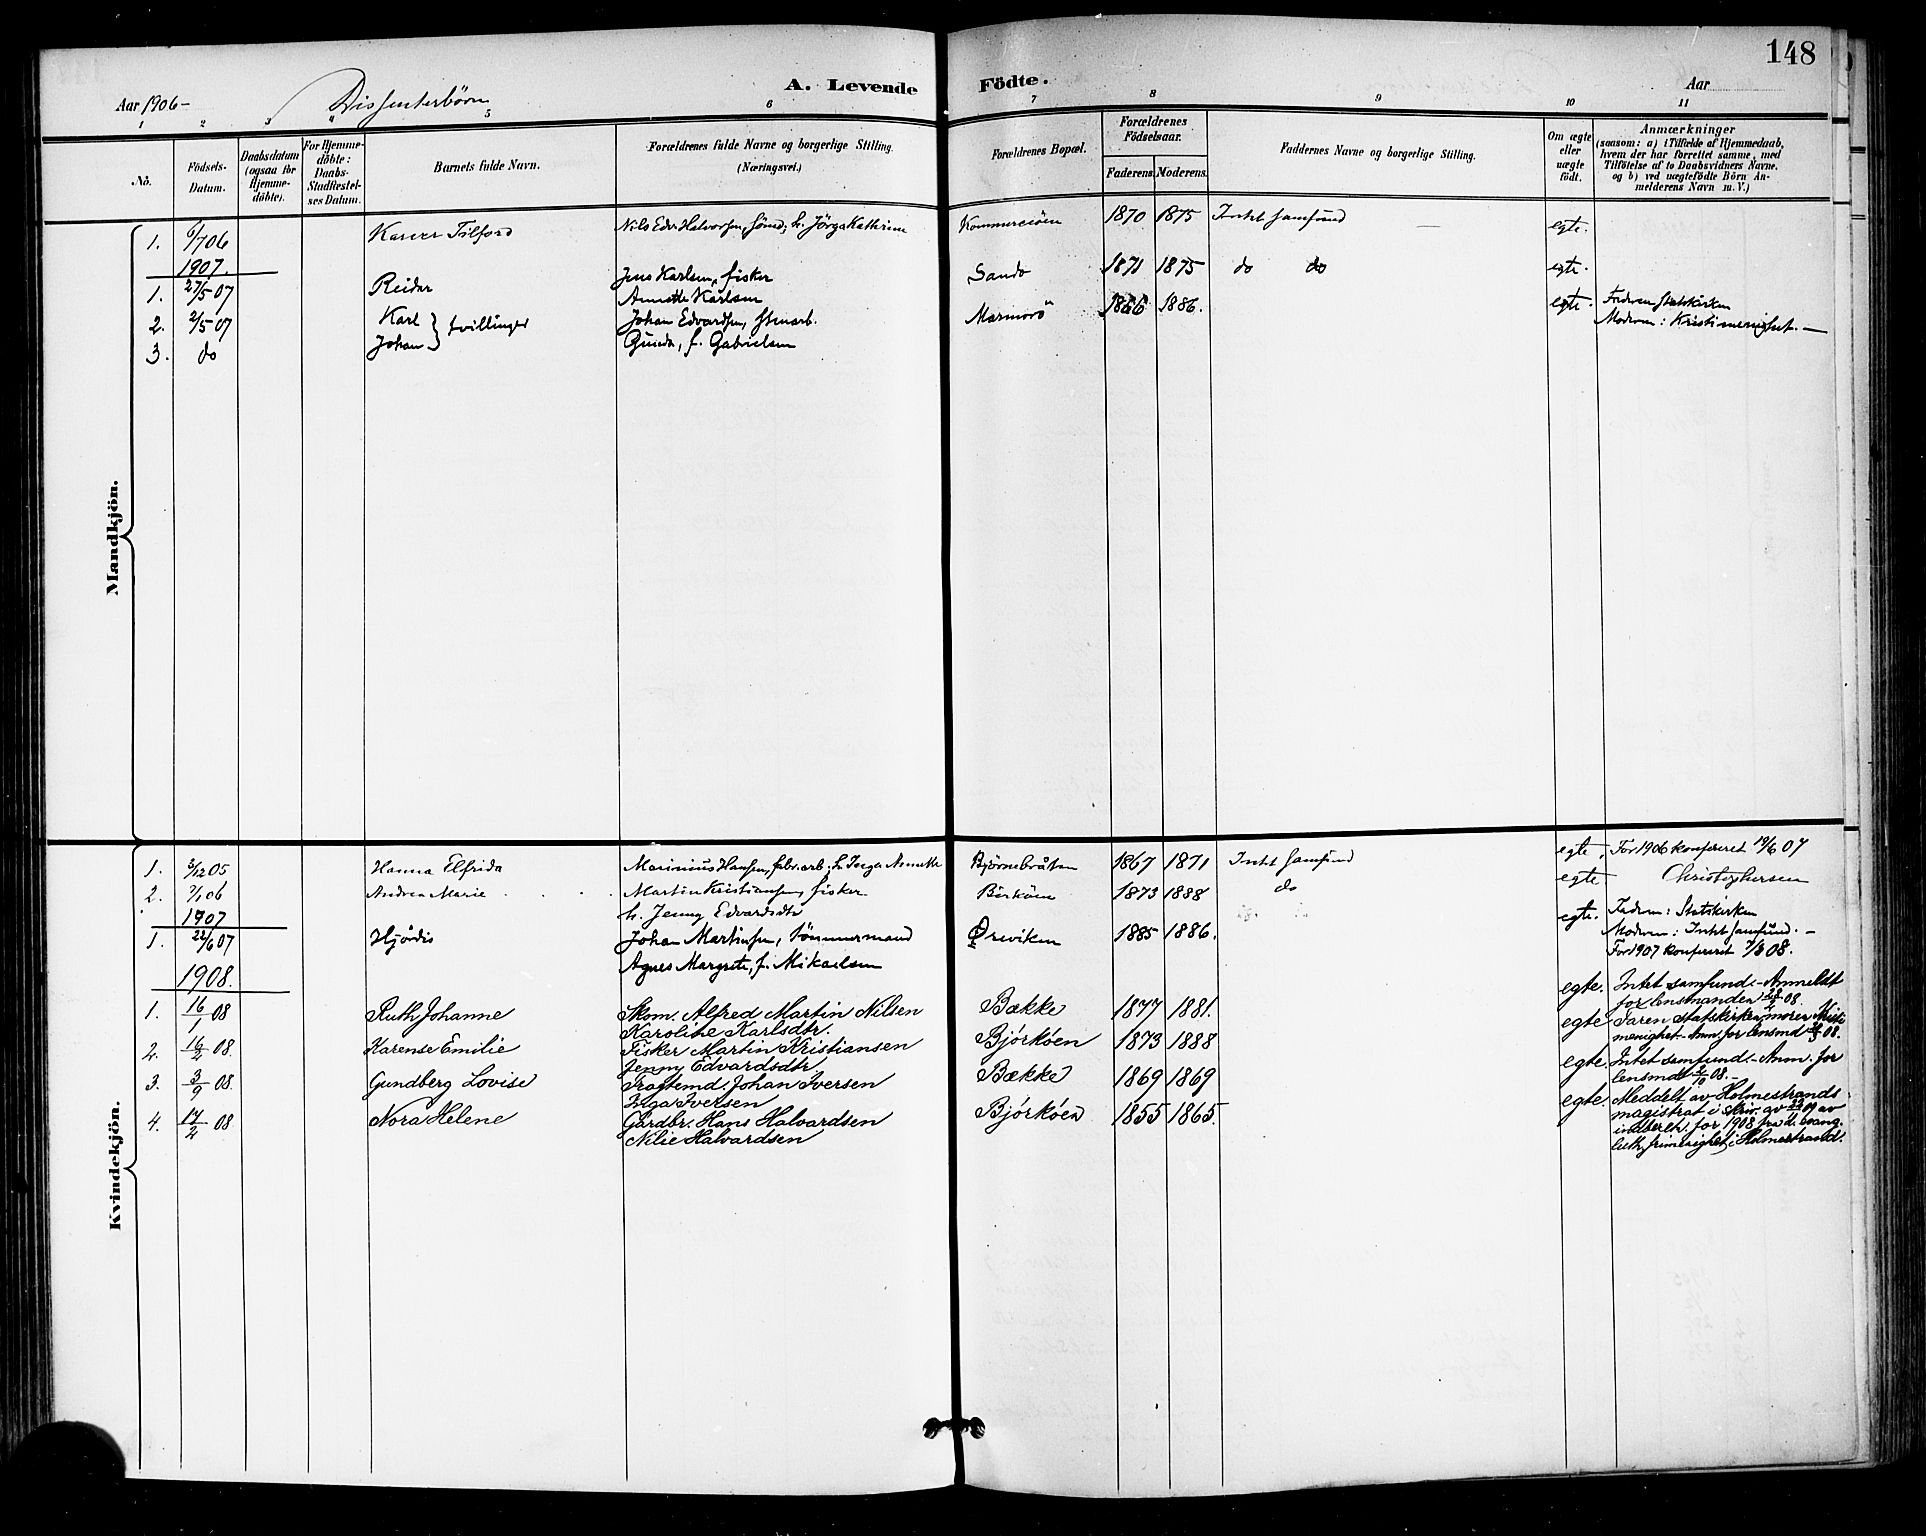 148
Aar 1906 – Dissenterbörn A. Levende Födte. Aar
1 2 3 4 5 6 7 8 9 10 11
Nô. Födsels-Datum. Daabsdatum (ogsaa for Hjemme-döbte). For Hjemme-döbte: Daabs-Stadfæstel-ses Datum. Barnets fulde Navn. Forældrenes fulde Navne og borgerlige Stilling. (Næringsvei.) Forældrenes Bopæl. Forældrenes Födselsaar. Faderens. Moderens. Faddernes Navne og borgerlige Stilling. Om ægte eller uægte födt. Anmærkninger (saasom: a) i Tilfælde af Hjemmedaab, hvem der har forrettet samme, med Tilföielse af to Daabsvidners Navne. og b) ved uægtefödte Börn An-melderens Navn m. V.)
Mandkjön.
1. 6/7 06 Karver Tilford Nils Edv. Halvorsen, Sömd; h. Jörga Kathrine Kommersöen 1870 1875 Intet samfund egte.
1907.
1. 27/5 07 Reidar Jens Karlsen, fisker Sando 1871 1875 do do egte.
Annette Karlsen
2. 2/5 07 Karl } tvillinger Johan Edvardsen, stenarb. Mærmorö 1866 1886. egte. Faderen statskirken
3. do Johan } Gunda, f. Gabrielsen Moderen: Kristi menighet. –
Kvindekjön.
1. 3/12 05 Hanna Elfrida Marinius Hansen, fabr.arb; h. Inga Annette Bjørnebråten 1867 1871 Intet samfund egte, For 1906 konfereret 19/6 07
2. 7/1 06 Andrea Marie Martin Kristiansen, fisker Birköen 1873 1888 do egte Christophersen
h. Jenny Edvardsdtr
1907
1. 22/6 07 Hjördis Johan Martinsen, tömmermand Øreviken 1885 1886. egte. Faderen: Statskirken
Moderen: Intet samfund. –
Agnes Margrete, f. Mikaelsen For 1907 konfereret 7/3 08.
1908.
1. 16/1 08 Ruth Johanne Skom. Alfred Martin Nilsen Bække 1877 1881. egte. Intet samfund – Anmeldt
Karoline Karlsdtr. for lensmanden 28/2 08.
2. 16/2 08. Karense Emilie Fisker Martin Kristiansen Bjórkóen 1873 1888 egte Faren statskirken, moren Kristi
Jenny Edvardsdtr. menighet – Anm. for lensmd 08.
3. 3/9 08. Gundberg Lovise Fragtemd. Johan Iversen Bække 1869 1869 egte. Intet samfund – Anm. for
Inga Iversen lensmd 2/10 08. –
4. 17/2 08 Nora Helene Gårdbr. Hans Halvardsen Bjórkóen 1855 1865. egte. Meddelt av Holmestrands
Nilie Halvardsen magistrat i skriv. av 09 av
indberetn. for 1908 fra d. evang.
luth. frimenighet i Holmestrand.